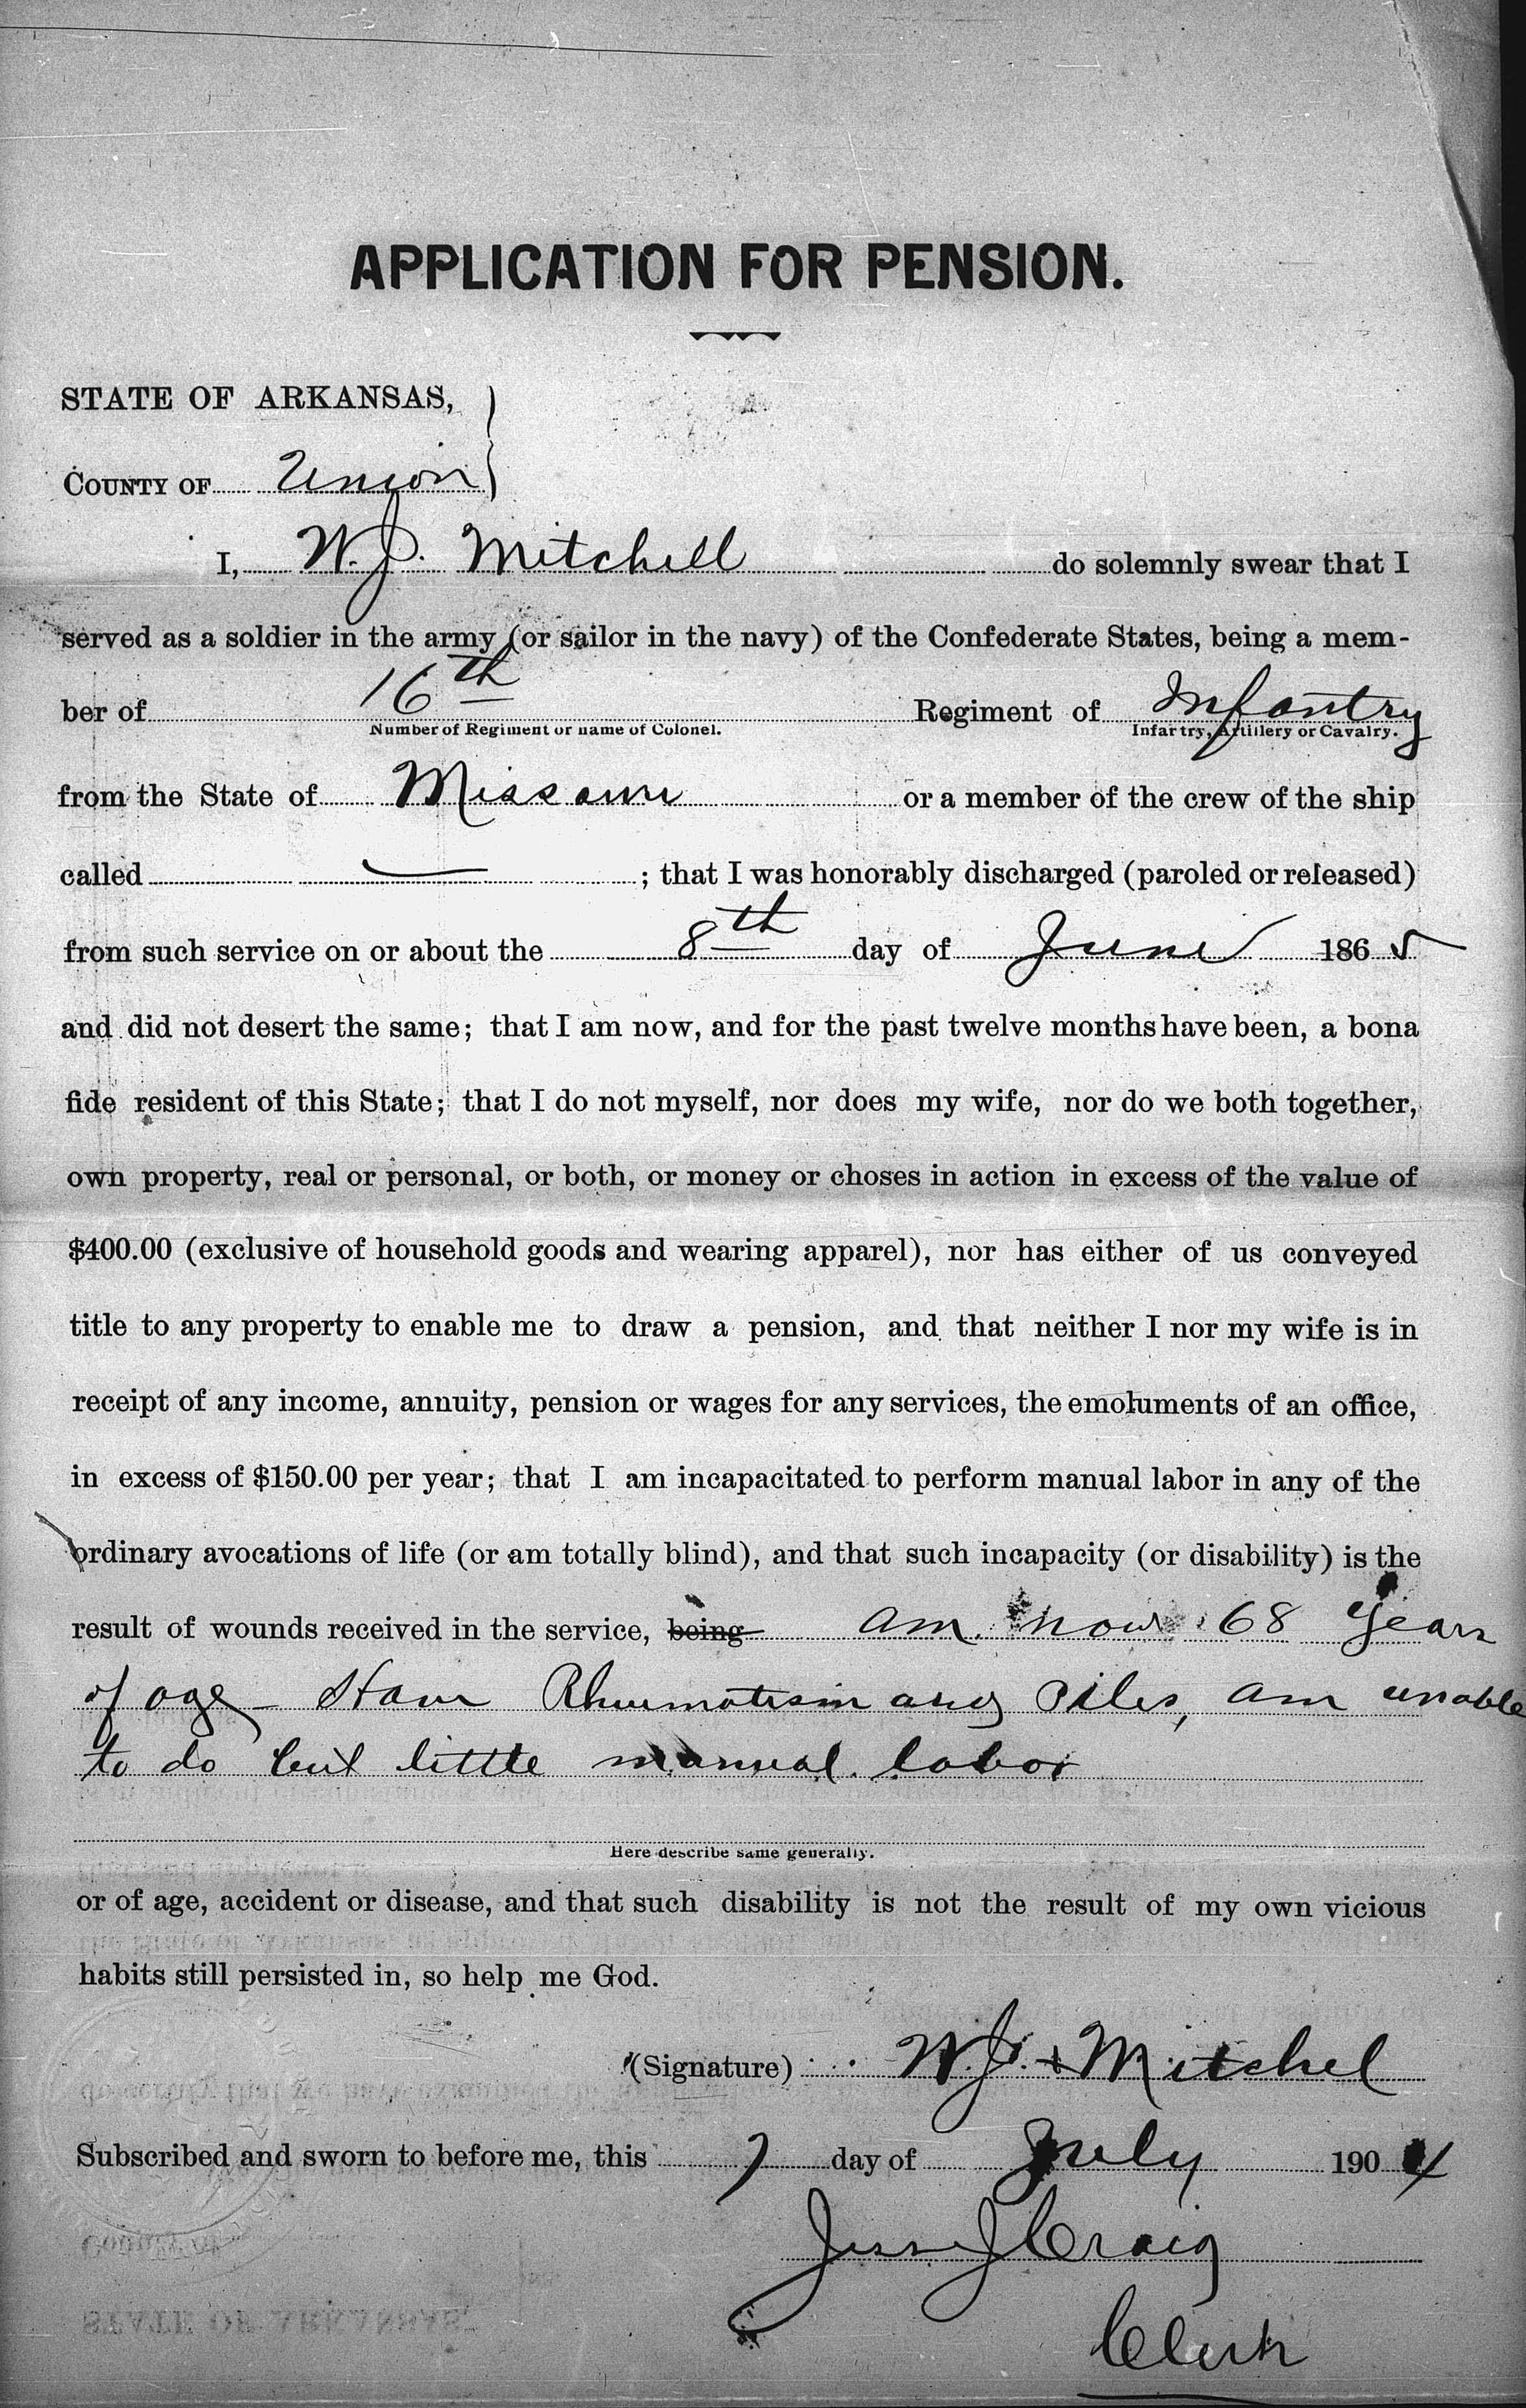 APPLICATION FOR PENSION.
STATE OF ARKANSAS,
COUNTY OF Union
I, W. J. Mitchell do solemnly swear that I
served as a soldier in the army (or sailor in the navy) of the Confederate States, being a mem-
ber of 16th Regiment of Infantry
Number of Regiment or name of Colonel. Infantry, Artillery or Cavalry.
from the State of Missouri or a member of the crew of the ship
called — ; that I was honorably discharged (paroled or released)
from such service on or about the 8th day of June 1865
and did not desert the same; that I am now, and for the past twelve months have been, a bona
fide resident of this State; that I do not myself, nor does my wife, nor do we both together,
own property, real or personal, or both, or money or choses in action in excess of the value of
$400.00 (exclusive of household goods and wearing apparel), nor has either of us conveyed
title to any property to enable me to draw a pension, and that neither I nor my wife is in
receipt of any income, annuity, pension or wages for any services, the emoluments of an office,
in excess of $150.00 per year; that I am incapacitated to perform manual labor in any of the
ordinary avocations of life (or am totally blind), and that such incapacity (or disability) is the
result of wounds received in the service, being am now 68 years
of age – Have Rhumatism and Piles, am unable
to do but little manual labor
Here describe same generally.
or of age, accident or disease, and that such disability is not the result of my own vicious
habits still persisted in, so help me God.
(Signature) W. J. + Mitchel
Subscribed and sworn to before me, this 7 day of July 1904
Jesse J Craig
Clerk